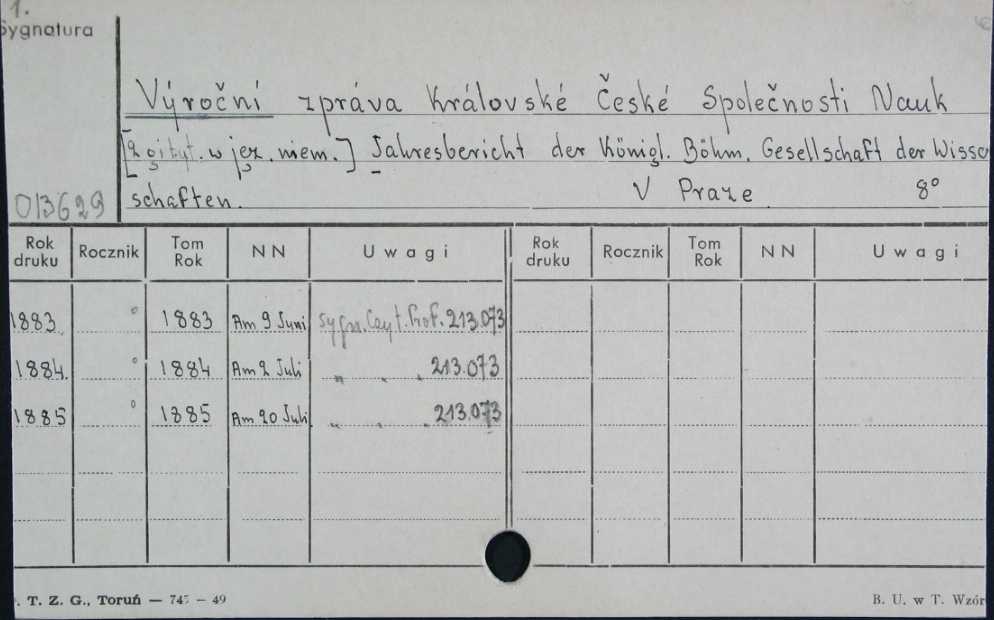 1.
Sygnatura
Výroční zpráva Královské České Společnosti Nauk
w jęz. niem.] Jahresbericht der Königl. Böhm. Gesellschaft der Wisse
schaften. V Praze 8°
013629
Rok druku Rocznik Tom Rok NN Uwagi Rok druku Rocznik Tom Rok NN Uwagi
1883 ° 1883 Am 9 Juni Sygn. Czyt. Prof. 213.073
1884. ° 1884 Am 2 Juli „ „ „ 213.073
1885 ° 1885 Am 20 Juli „ „ „ 213.073
. T. Z. G., Toruń — 747 – 49
B. U. w T. Wzór